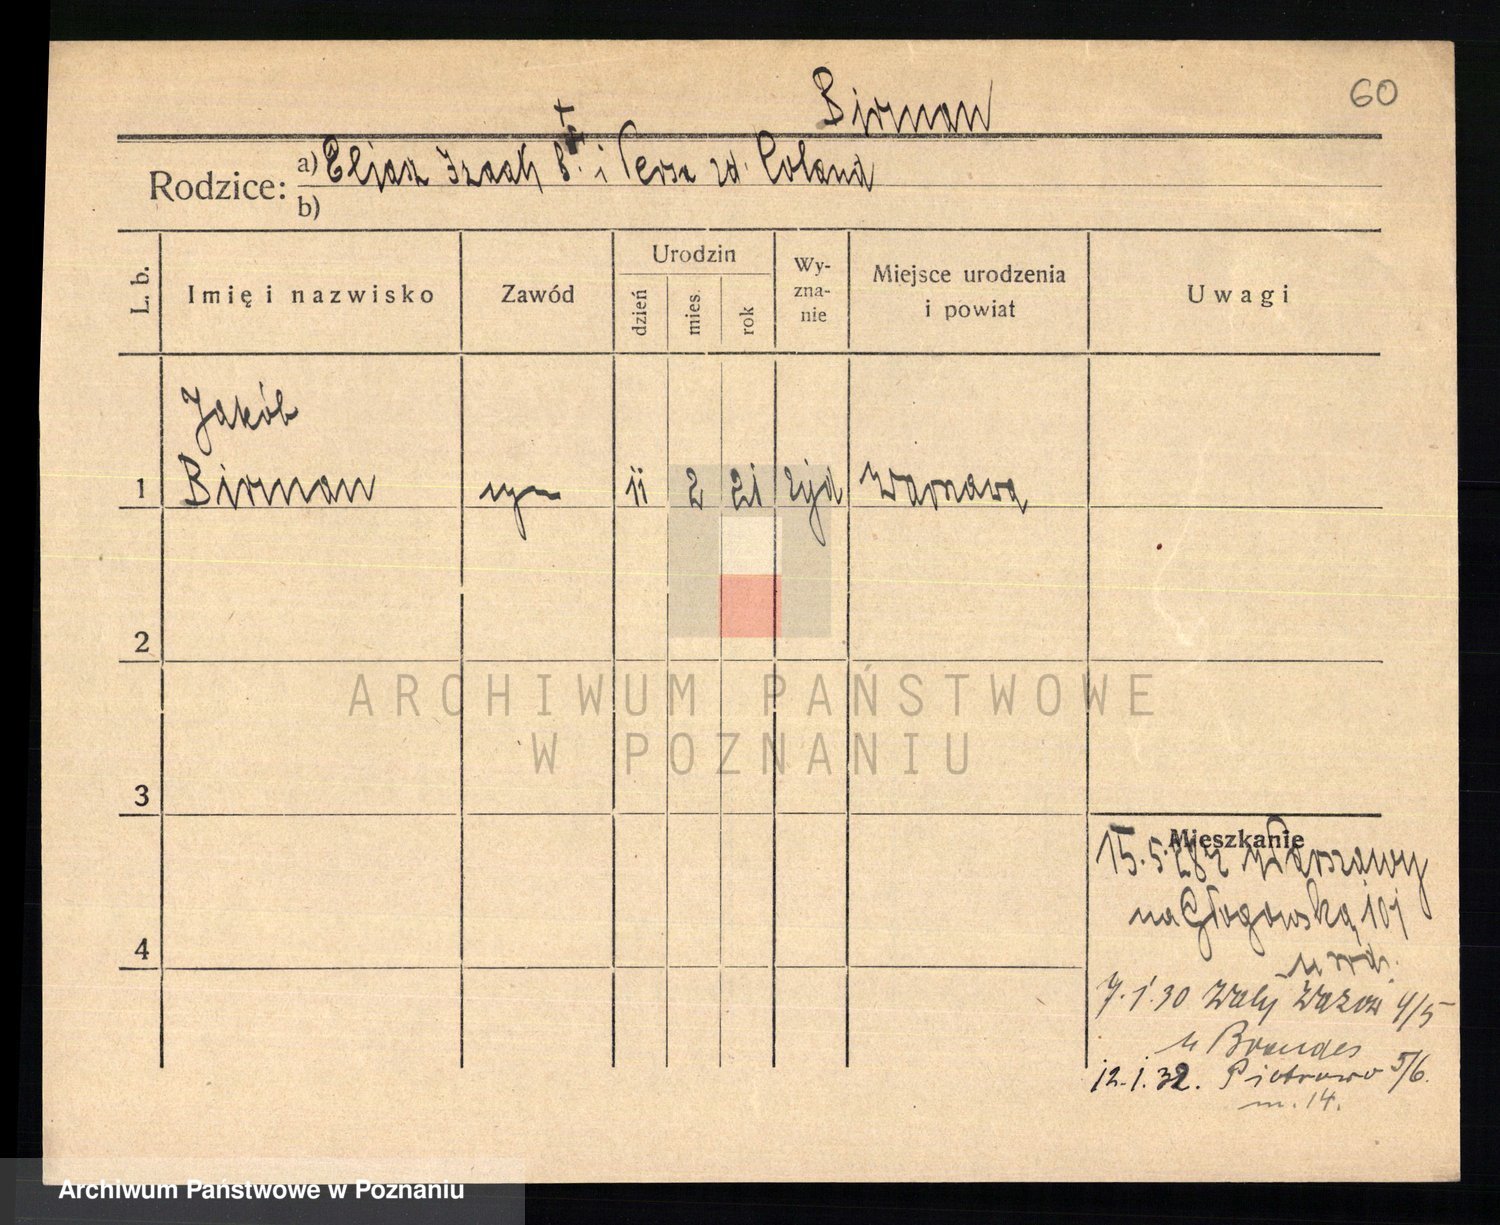 60
Birman
Rodzice: a) Eljasz Izaak B. i Persa zd. Coland
b)
L. b. Imię i nazwisko Zawód Urodzin dzień mies. rok Wy-zna-nie Miejsce urodzenia i powiat Uwagi
Jakób
1 Birman syn 11 2 21 żyd Warszawa
2
ARCHIWUM PAŃSTWOWE
W POZNANIU
3
Mieszkanie
15.5.28 z Warszawy
na Głogowską 101
4
7.1.30 Wały Wazów 4/5
u Brandes
12.1.32. Piotrowo 5/6.
m. 14.
Archiwum Państwowe w Poznaniu